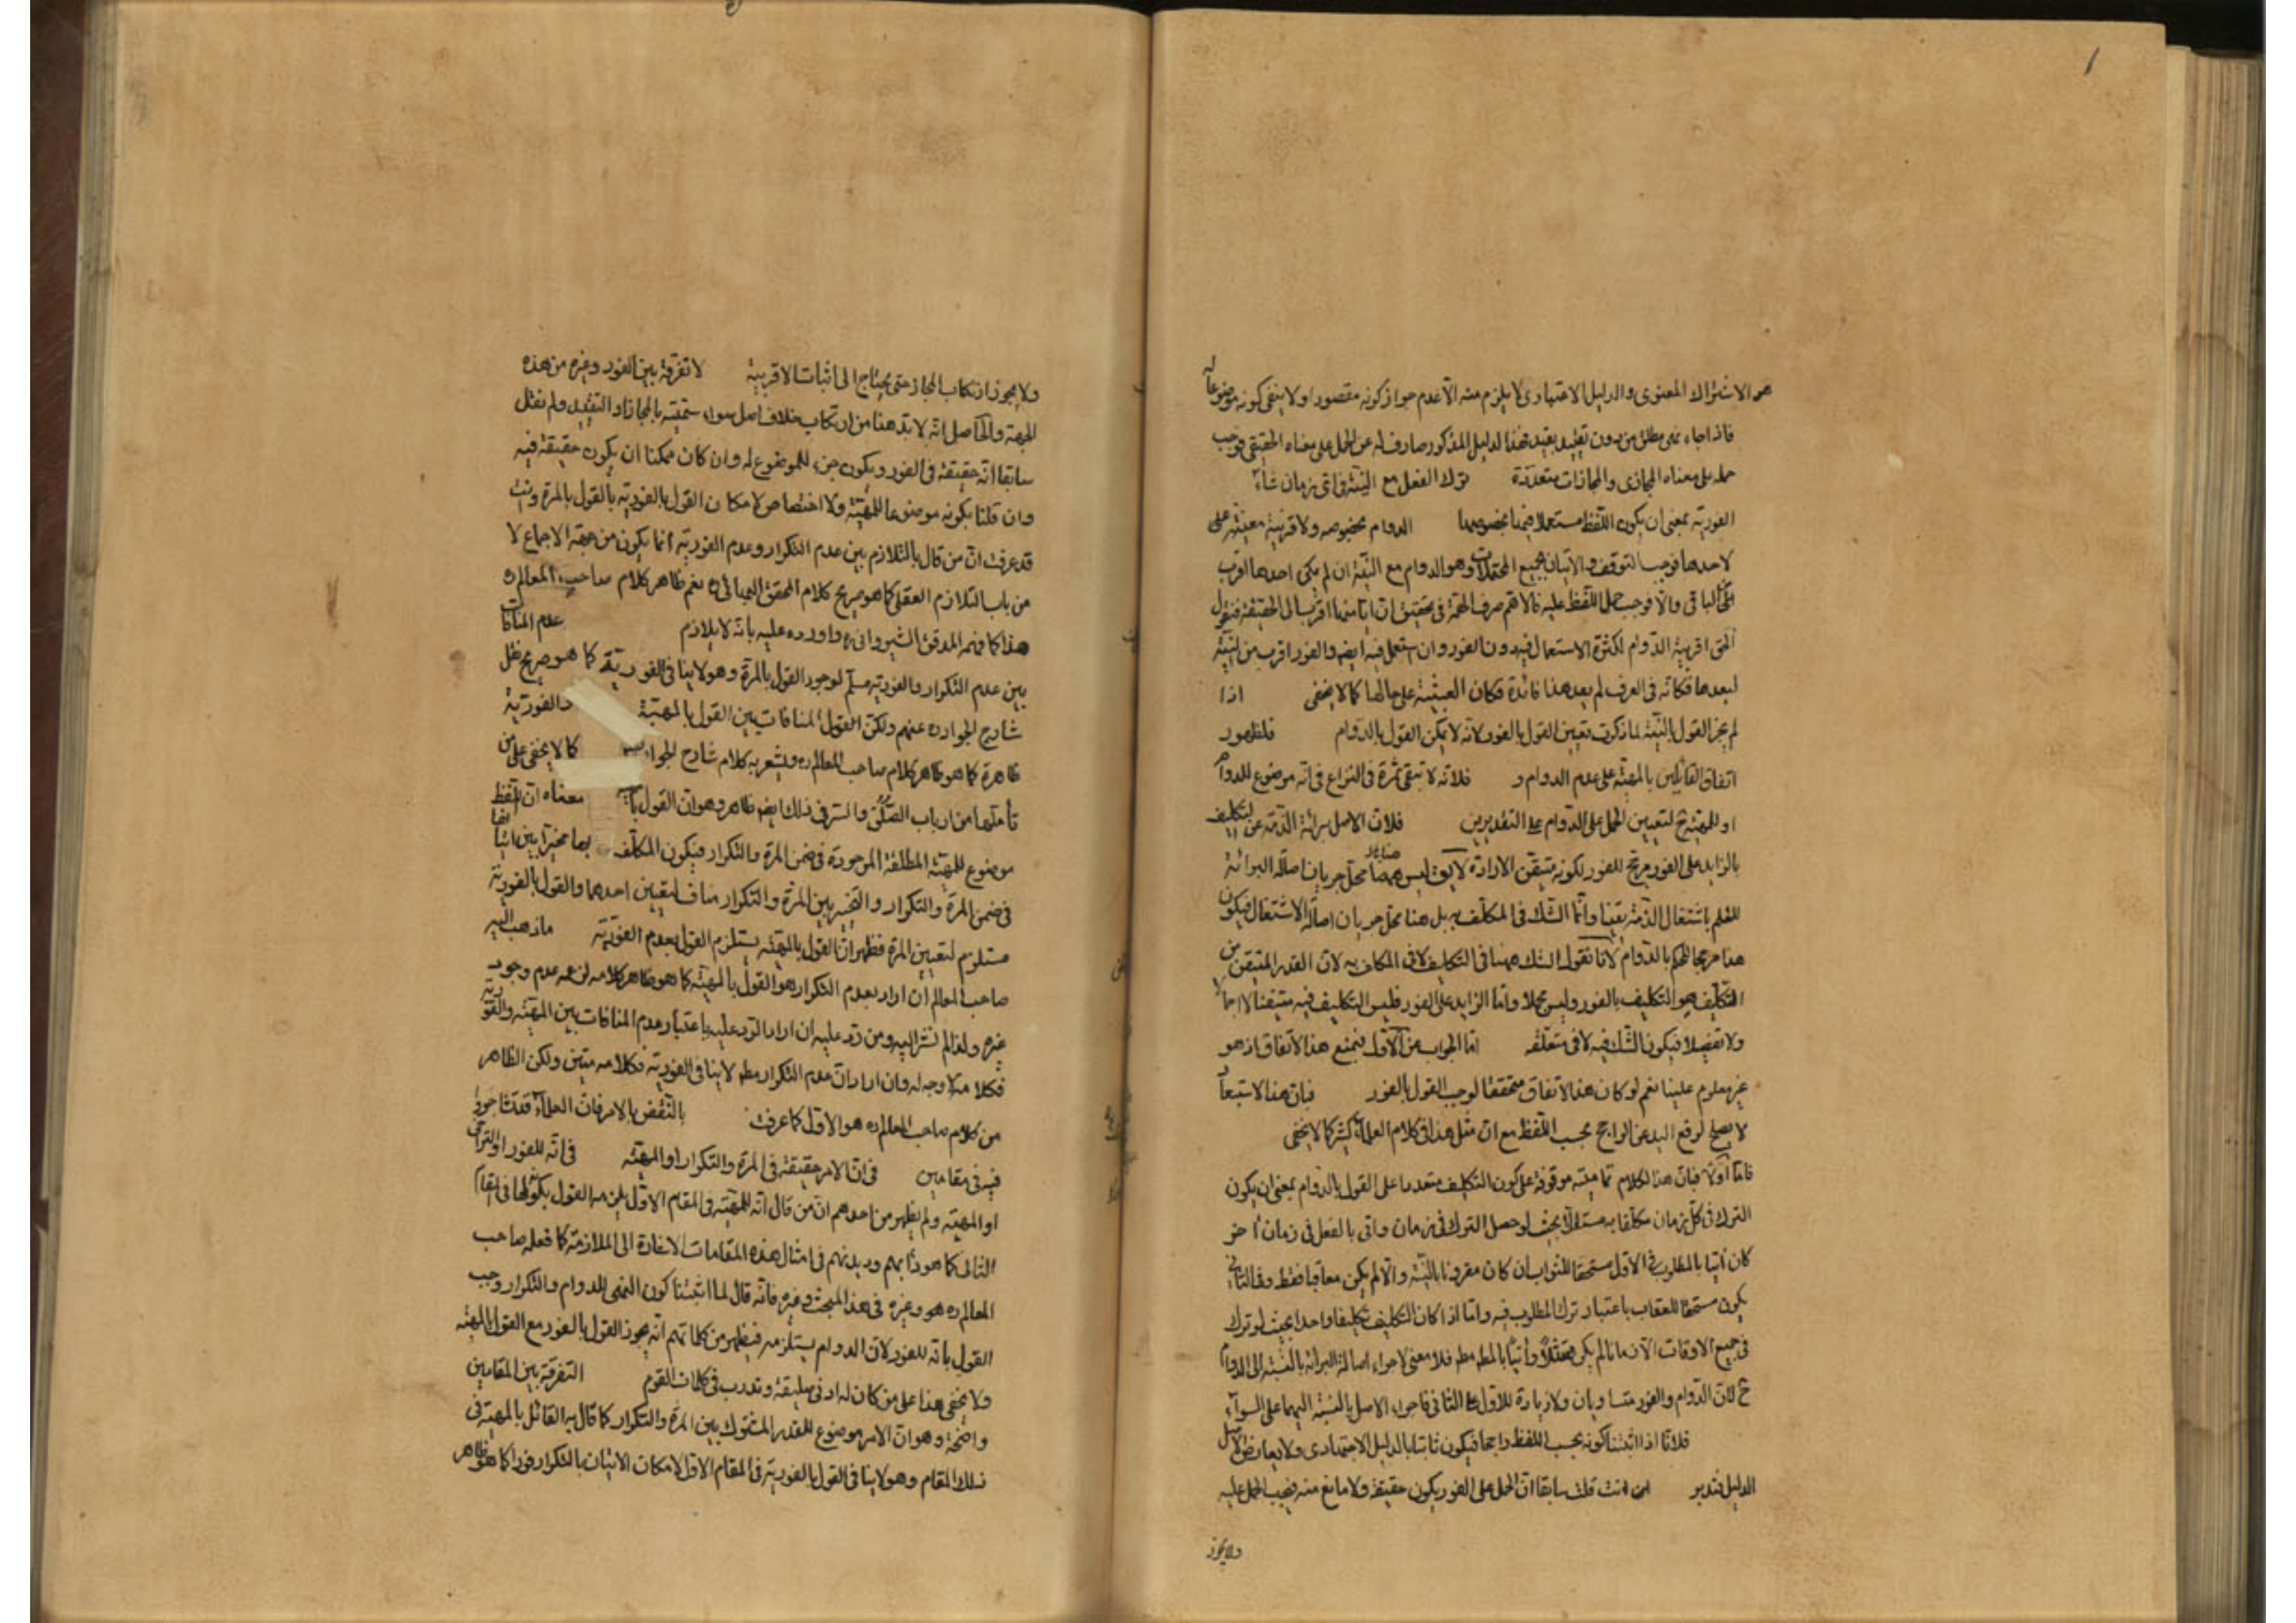 هو الاشتراك المعنوى والدليل الاعتبارى لا يلزم منه الا عدم جواز كونه مقصودا ولا ينفى كونه موضوعا له
فاذا جاء نهى مطلق من دون تقييد بقيد فهذا الدليل المذكور صارف له عن الحمل على معناه الحقيقى فوجب
حمله على معناه المجازى والمجازات متعددة ترك الفعل مع النية فى اى زمان شاء
الفورية بمعنى ان يكون اللفظ مستعملا فيهما بخصوصهما الدوام بخصوصه ولا قرينة معينة على
لاحدها فوجب التوقف والاتيان بجميع المحتملات وهو الدوام مع النية ان لم يكن احدها اقرب
الى الباقى والا فوجب حمل اللفظ عليه فالاهم صرف الهمة فى تحقيق ان ايا منها اقرب الى الحقيقة فنقول
الحق اقربية الدوام لكثرة الاستعمال فيه دون الفور وان استعمل فيه ايضا والفور اقرب من النية
لبعدها فكانه فى العرف لم يعد هذا فائدة فكان العبثية على حالها كما لا يخفى اذا
لم يجز القول بالنية لما ذكرت تعين القول بالفور لانه لا يمكن القول بالدوام فلظهور
اتفاق القائلين بالمهية على عدم الدوام و فلانه لا تبقى ثمرة فى النزاع فى انه موضوع للدوام
او للمهية ح لتعيين الحمل على الدوام على التقديرين فلان الاصل برائة الذمة عن التكليف
بالزايد على الفور مرجح للفور لكونه متيقن الارادة لا يق ليس ههنا محل جريان اصالة البرائة
للعلم باشتغال الذمة يقينا وانما الشك فى المكلف به بل هنا محل جريان اصالة الاشتغال فيكون
هذا مرجحا للحكم بالدوام لانا نقول الشك ههنا فى التكليف لا فى المكلف به لان القدر المتيقن من
التكليف هو التكليف بالفور وليس مجملا واما الزايد على الفور فليس التكليف فيه متيقنا لا اجمالا
ولا تفصيلا فيكون الشك فيه لا فى متعلقه اما الجواب عن الاول فنمنع هذا الاتفاق اذ هو
غير معلوم علينا نعم لو كان هذا الاتفاق متحققا لوجب القول بالفور فبان هذا الاستبعاد
لا يصلح لرفع اليد عن الراجح بحسب اللفظ مع ان مثل هذا فى كلام العلماء كثير كما لا يخفى
فاما اولا فبان هذا الكلام تماميته موقوفة على كون التكليف متعددا على القول بالدوام بمعنى ان يكون
الترك فى كل زمان مكلفا به مستقلا بحيث لو حصل الترك فى زمان واتى بالفعل فى زمان آخر
كان آتيا بالمطلوب فى الاول مستحقا للثواب ان كان مقرونا بالنية والا لم يكن معاقبا فقط وفى الثانى
يكون مستحقا للعقاب باعتبار ترك المطلوب فيه واما اذا كان التكليف تكليفا واحدا بحيث لو ترك
فى جميع الاوقات الا زمانا لم يكن ممتثلا وآتيا بالمط مط فلا معنى لاجراء اصالة البرائة بالنسبة الى الدوام
ح لان الدوام والفور متساويان ولا زيادة للاول على الثانى فاجراء الاصل بالنسبة اليهما على السواء
فلانا اذا اثبتنا كونه بحسب اللفظ راجحا فيكون ثابتا بالدليل الاجتهادى ولا يعارض الاصل
الدليل فتدبر ان انت قلت سابقا ان الحمل على الفور يكون حقيقة ولا مانع منه فيجب الحمل عليه
ولا يجوز
ولا يجوز ارتكاب المجاز حتى يحتاج الى اثبات الاقربية لا تفرقة بين الفور وغيره من هذه
الجهة والحاصل انه لا بد هنا من ارتكاب خلاف اصل سواء سميته بالمجاز او التقييد ولم نقل
سابقا انه حقيقة فى الفور ويكون جزء للموضوع له وان كان ممكنا ان يكون حقيقة فيه
وان قلنا بكونه موضوعا للمهية ولا اختصاص لامكان القول بالفورية بالقول بالمرة وانت
قد عرفت ان من قال بالتلازم بين عدم التكرار وعدم الفورية انما يكون من جهة الاجماع لا
من باب التلازم العقلى كما هو صريح كلام المحقق البهائى ره نعم ظاهر كلام صاحب المعالم ره
هذا كما فهمه المدقق الشيروانى ره واورده عليه بانه لا يلازم عدم المنافات
بين عدم التكرار والفورية مسلم لوجود القول بالمرة وهو لا ينافى الفورية كما هو صريح نقل
شارح الجواد ره عنهم ولكن القول المنافات بين القول بالمهية والفورية
ظاهرة كما هو ظاهر كلام صاحب المعالم ره ويشعر به كلام شارح الجواد كما لا يخفى على من
تأملها من ارباب والسر فى ذلك ايض ظاهر وهو ان القول معناه ان اللفظ
موضوع للمهية المطلقة الموجودة فى ضمن المرة والتكرار فيكون المكلف بها مخيرا بين ايقاعها
فى ضمن المرة والتكرار والتخيير بين المرة والتكرار مناف لتعيين احدهما والقول بالفورية
مستلزم لتعيين المرة فظهر ان القول بالمهية يستلزم القول بعدم الفورية ما ذهب اليه
صاحب المعالم ان اراد بعدم التكرار هو القول بالمهية كما هو ظاهر كلامه لزعمه عدم وجود
غيره ولذا لم نشر اليه ومن رد عليه ان اراد الرد عليه باعتبار عدم المنافات بين المهية والفورية
فكلامه لا وجه له وان اراد ان عدم التكرار مط لا ينافى الفورية فكلامه متين ولكن الظاهر
من كلام صاحب المعالم ره هو الاول كما عرفت بالنقض بالامر فان العلماء قد تشاجروا
فيه فى مقامين فى ان الامر حقيقة فى المرة والتكرار او المهية فى انه للفور او التراخى
او المهية ولم يظهر من احدهم ان من قال انه للمهية فى المقام الاول يلزمه القول بكونها فى المقام
الثانى كما هو دأبهم وديدنهم فى امثال هذه المقامات الاشارة الى الملازمة كما فعله صاحب
المعالم ره هو وغيره فى هذا المبحث وغيره فانه قال لما اثبتنا كون النهى للدوام والتكرار وجب
القول بانه للفور لان الدوام يستلزمه فيظهر من كلماتهم انه يجوز القول بالفور مع القول بالمهية
ولا يخفى هذا على من كان له ادنى سليقة وتدرب فى كلمات القوم التفرقة بين المقامين
واضحة وهو ان الامر موضوع للقدر المشترك بين المرة والتكرار كما قال به القائل بالمهية فى
ذلك المقام وهو لا ينافى القول بالفورية فى المقام الاول لامكان الاتيان بالتكرار فورا كما هو ظاهر